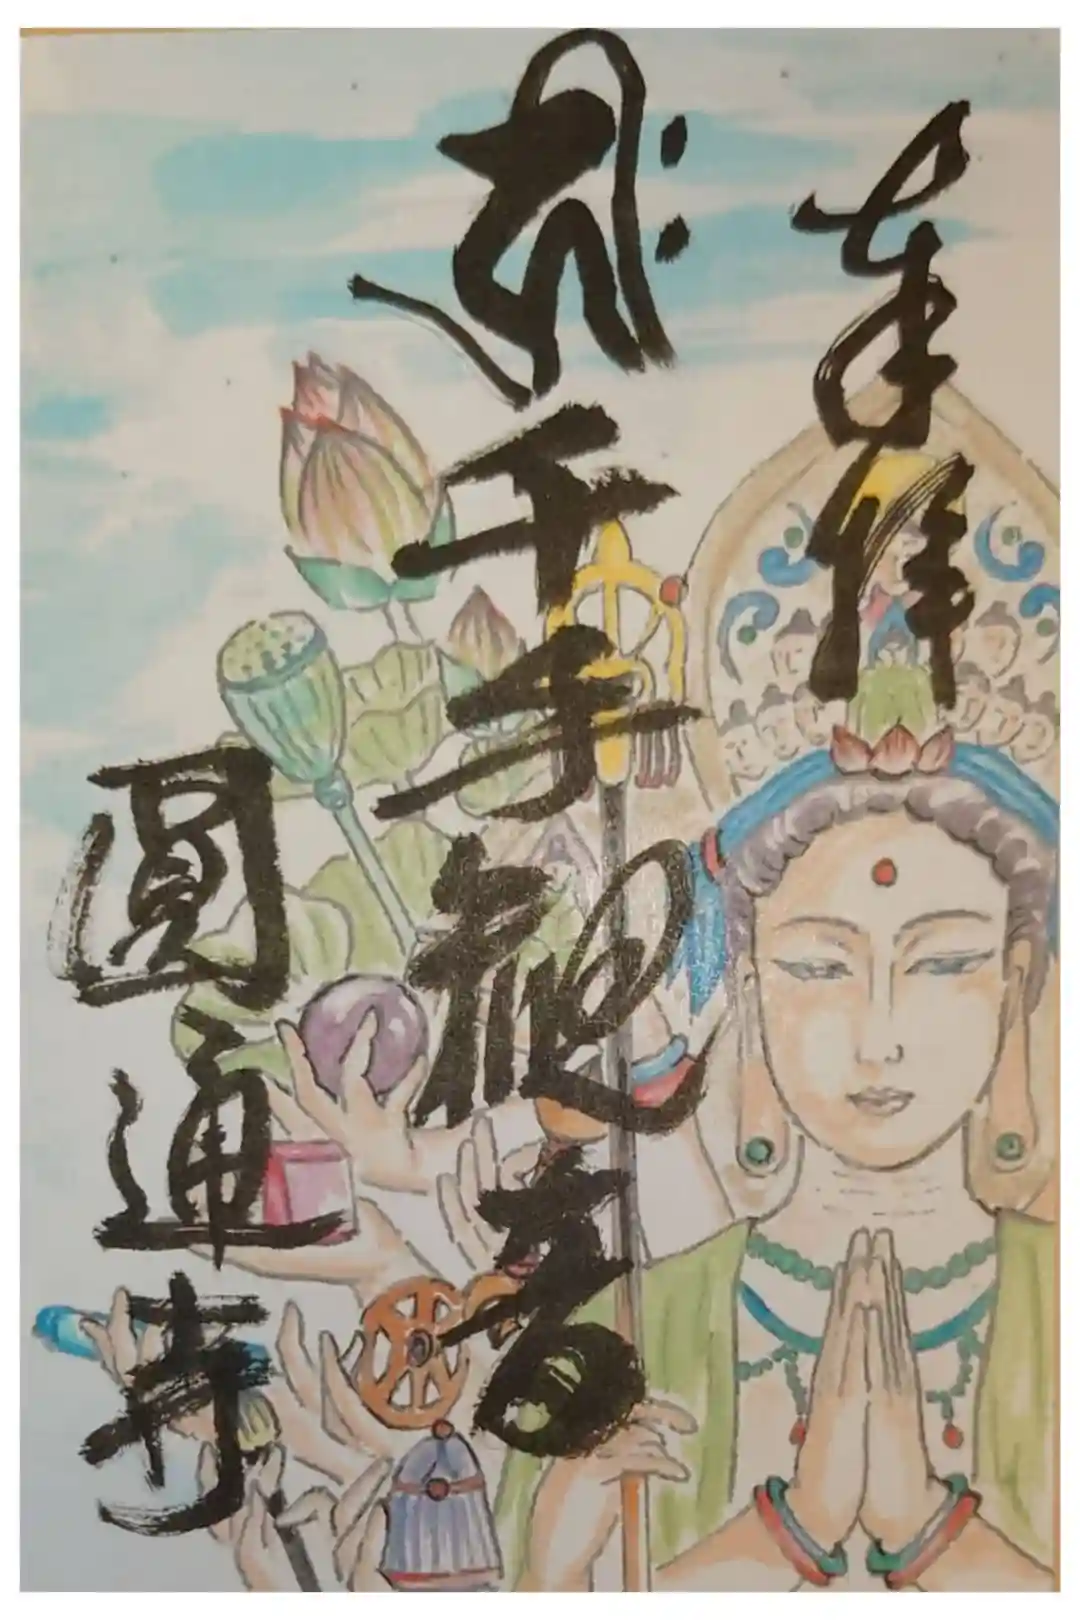 奉拝
𑖮𑖿𑖨𑖱𑖾千手観音
圓通寺